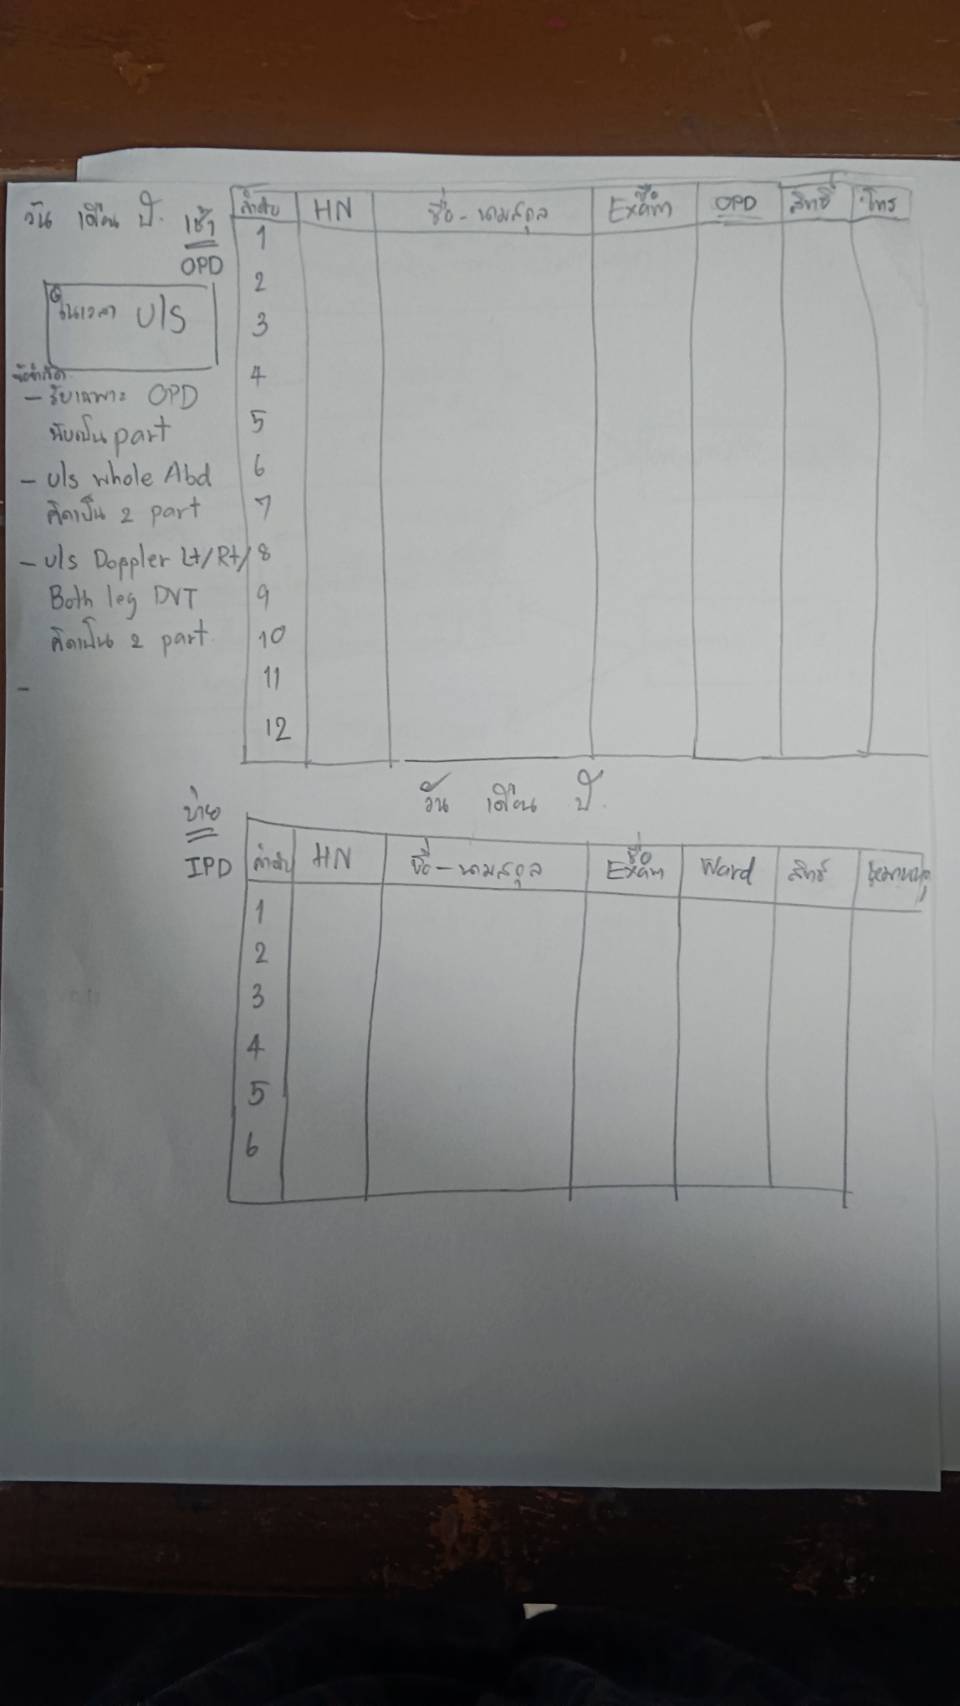 วัน เดือน ปี. เช้า
OPD
ในเวลา U/S
ข้อจำกัด
- รับเฉพาะ OPD
นับเป็น part
- U/S whole Abd
คิดเป็น 2 part
- U/S Doppler Lt/Rt/
Both leg DVT
คิดเป็น 2 part
-
ลำดับ HN ชื่อ - นามสกุล ชื่อ Exam OPD สิทธิ์ โทร
1
2
3
4
5
6
7
8
9
10
11
12
วัน เดือน ปี.
บ่าย
IPD
ลำดับ HN ชื่อ - นามสกุล ชื่อ Exam Ward สิทธิ์ หมายเหตุ
1
2
3
4
5
6